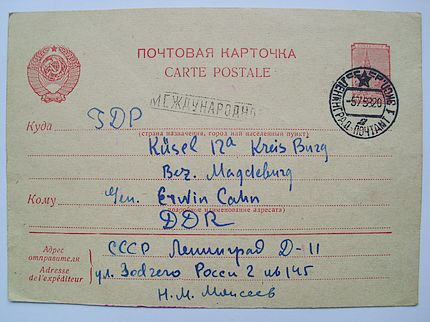 ПОЧТОВАЯ КАРТОЧКА
CARTE POSTALE
МЕЖДУНАРОДНОЕ
ЛЕНИНГРАД-ПОЧТАМТ
-5758-20
Куда ГДР
(страна назначения, город или населенный пункт)
Küsel 12a Kreis Burg
Bez. Magdeburg
Кому Gen. Erwin Cahn
(подробное наименование адресата)
DDR
Адрес отправителя СССР Ленинград Д-11
Adresse de l'expéditeur ул. Зодчего Росси 2 кв 145
Н. М. Моисеев